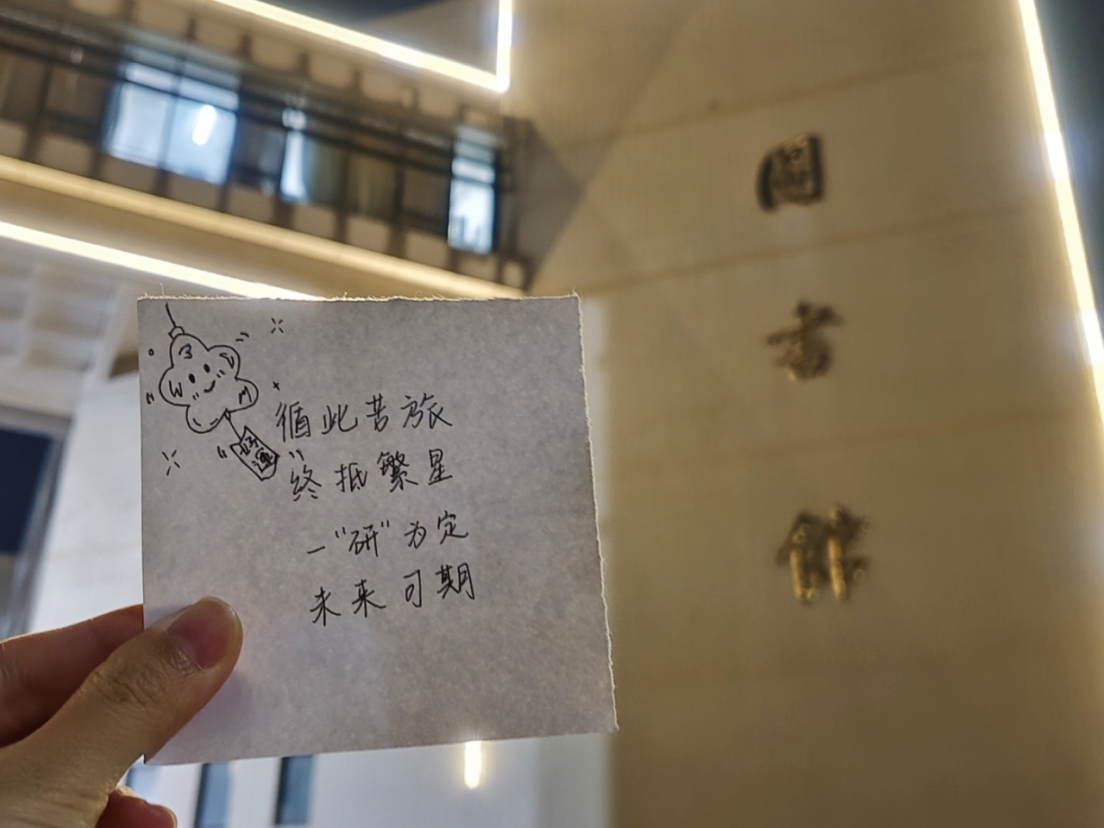 循此苦旅
终抵繁星
一“研”为定
未来可期
好運
圖書館